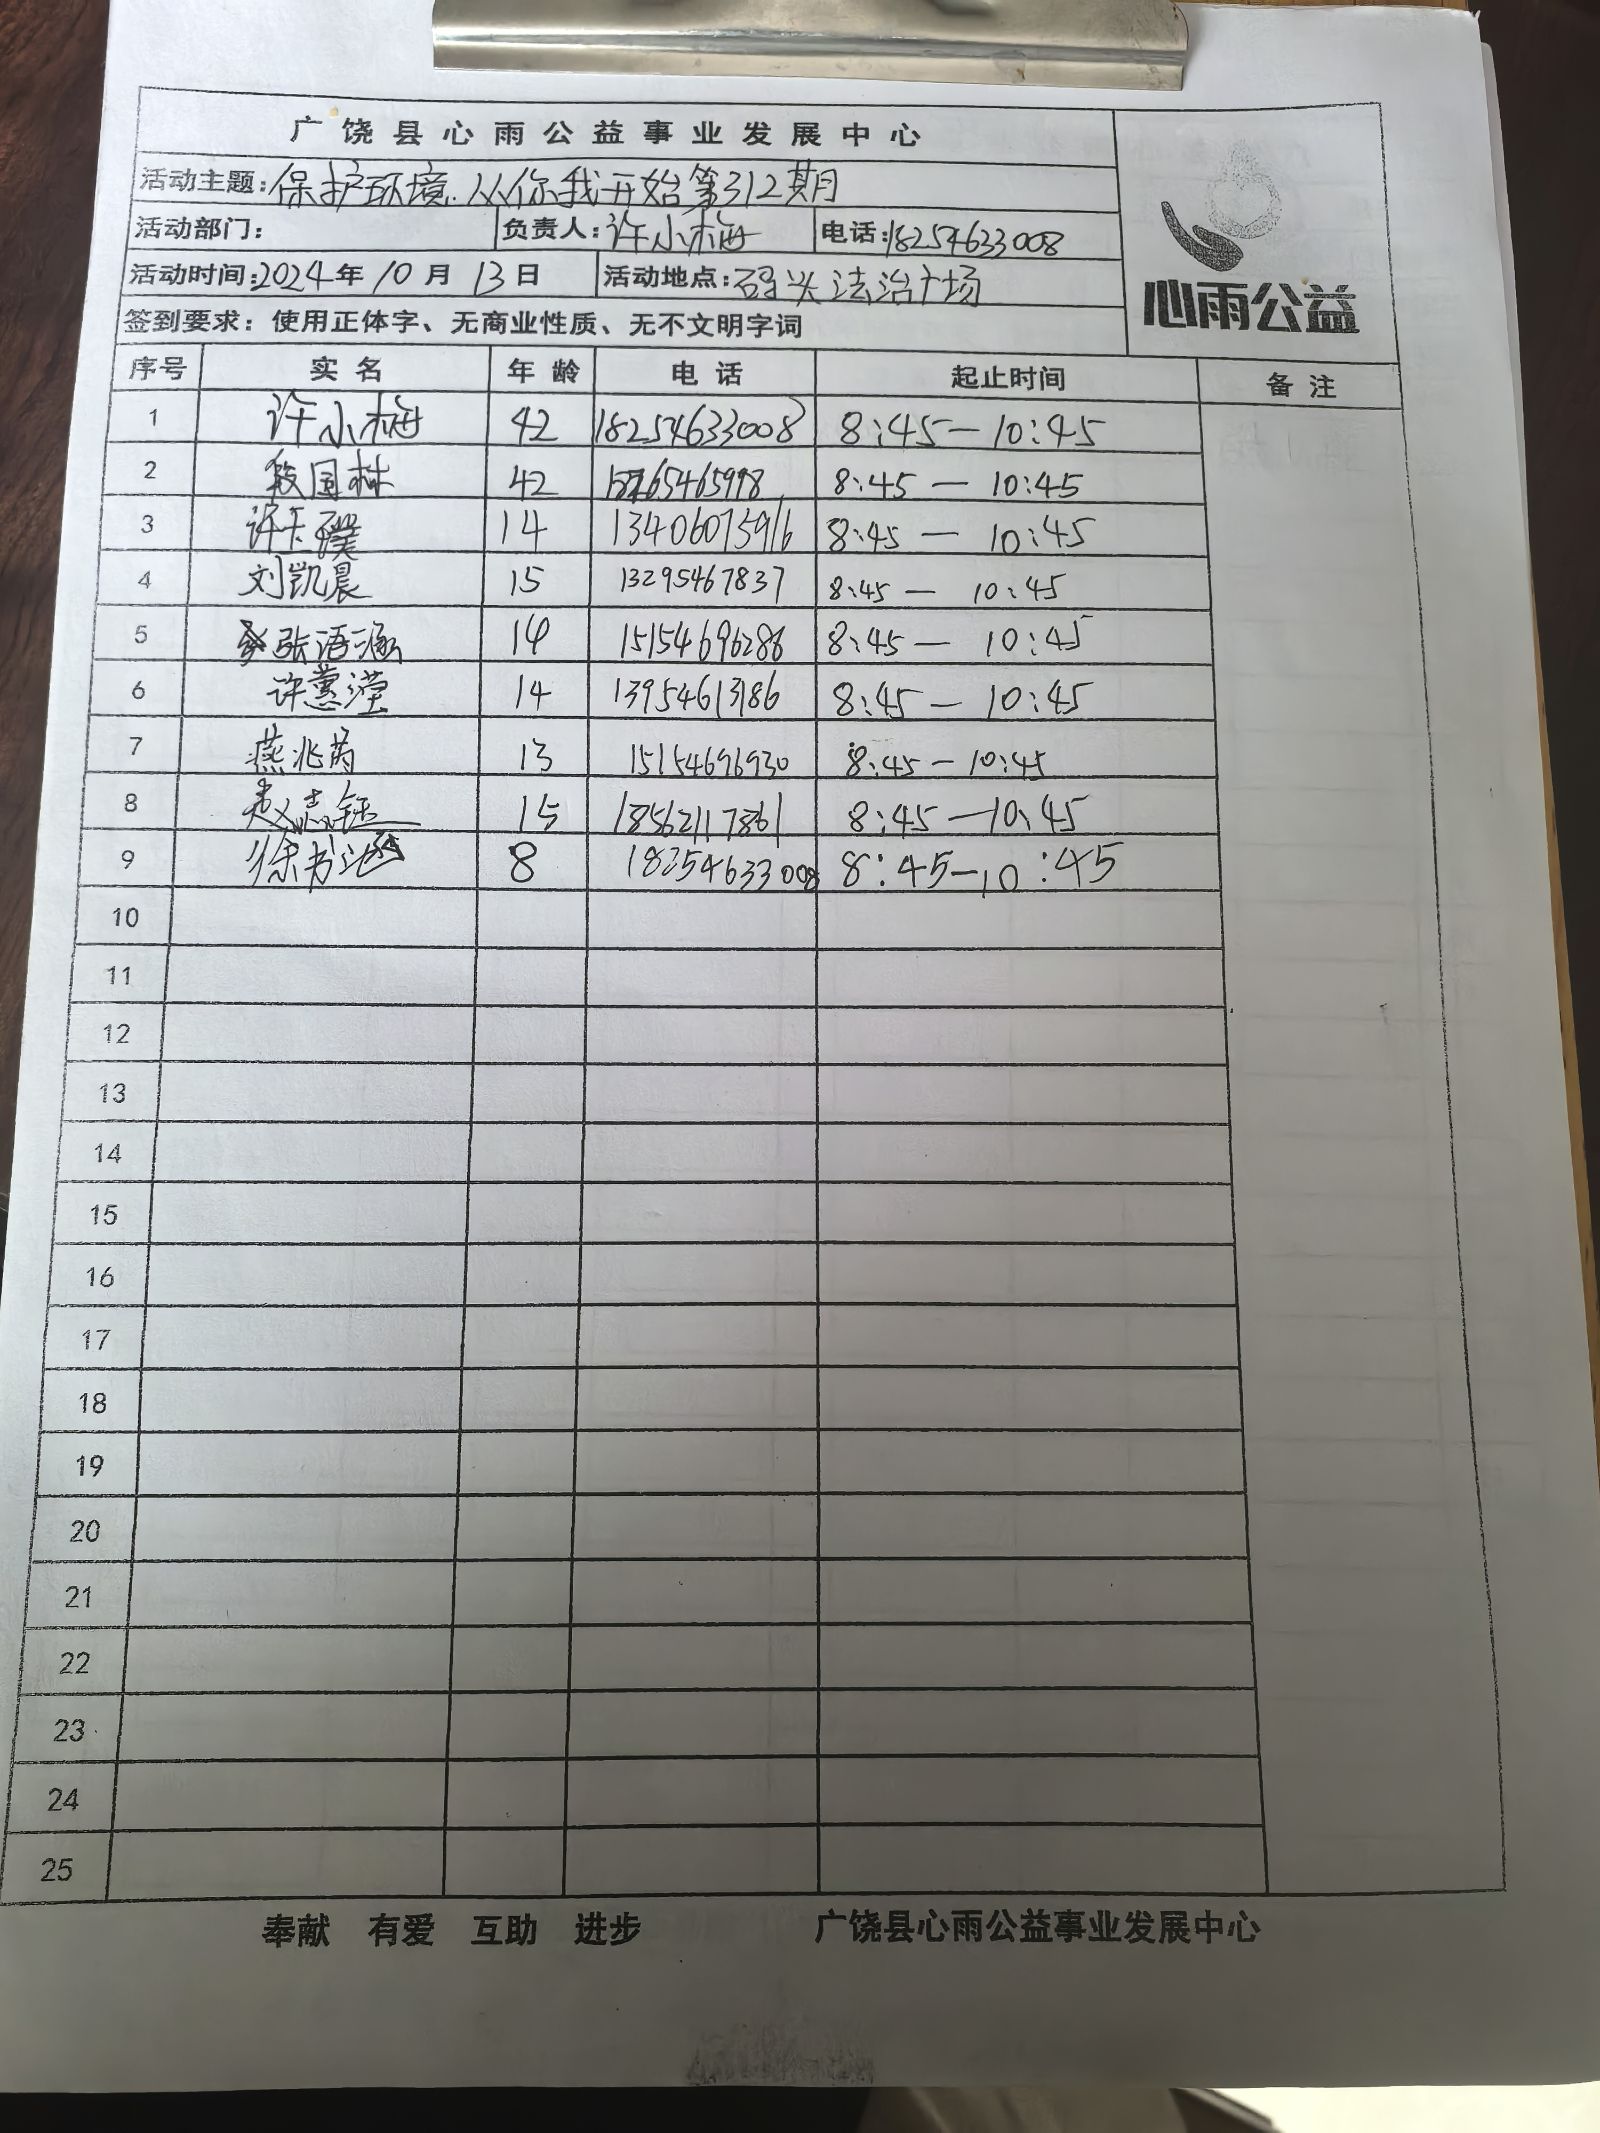 广饶县心雨公益事业发展中心
活动主题:保护环境.从你我开始第312期
活动部门: 负责人:许小梅 电话:18254633008
活动时间:2024年10月13日 活动地点:码头法治广场
心雨公益
签到要求:使用正体字、无商业性质、无不文明字词
序号 实名 年龄 电话 起止时间 备注
1 许小梅 42 18254633008 8:45—10:45
2 段国林 42 8:45—10:45
3 14 13406075916 8:45—10:45
4 刘凯晨 15 13295467837 8:45—10:45
5 张语涵 14 15154696286 8:45—10:45
6 许蕙滢 14 13954613186 8:45—10:45
7 燕兆芮 13 15154696930 8:45—10:45
8 赵志钰 15 18562117861 8:45—10:45
9 徐书涵 8 18254633008 8:45—10:45
10
11
12
13
14
15
16
17
18
19
20
21
22
23
24
25
奉献 有爱 互助 进步 广饶县心雨公益事业发展中心